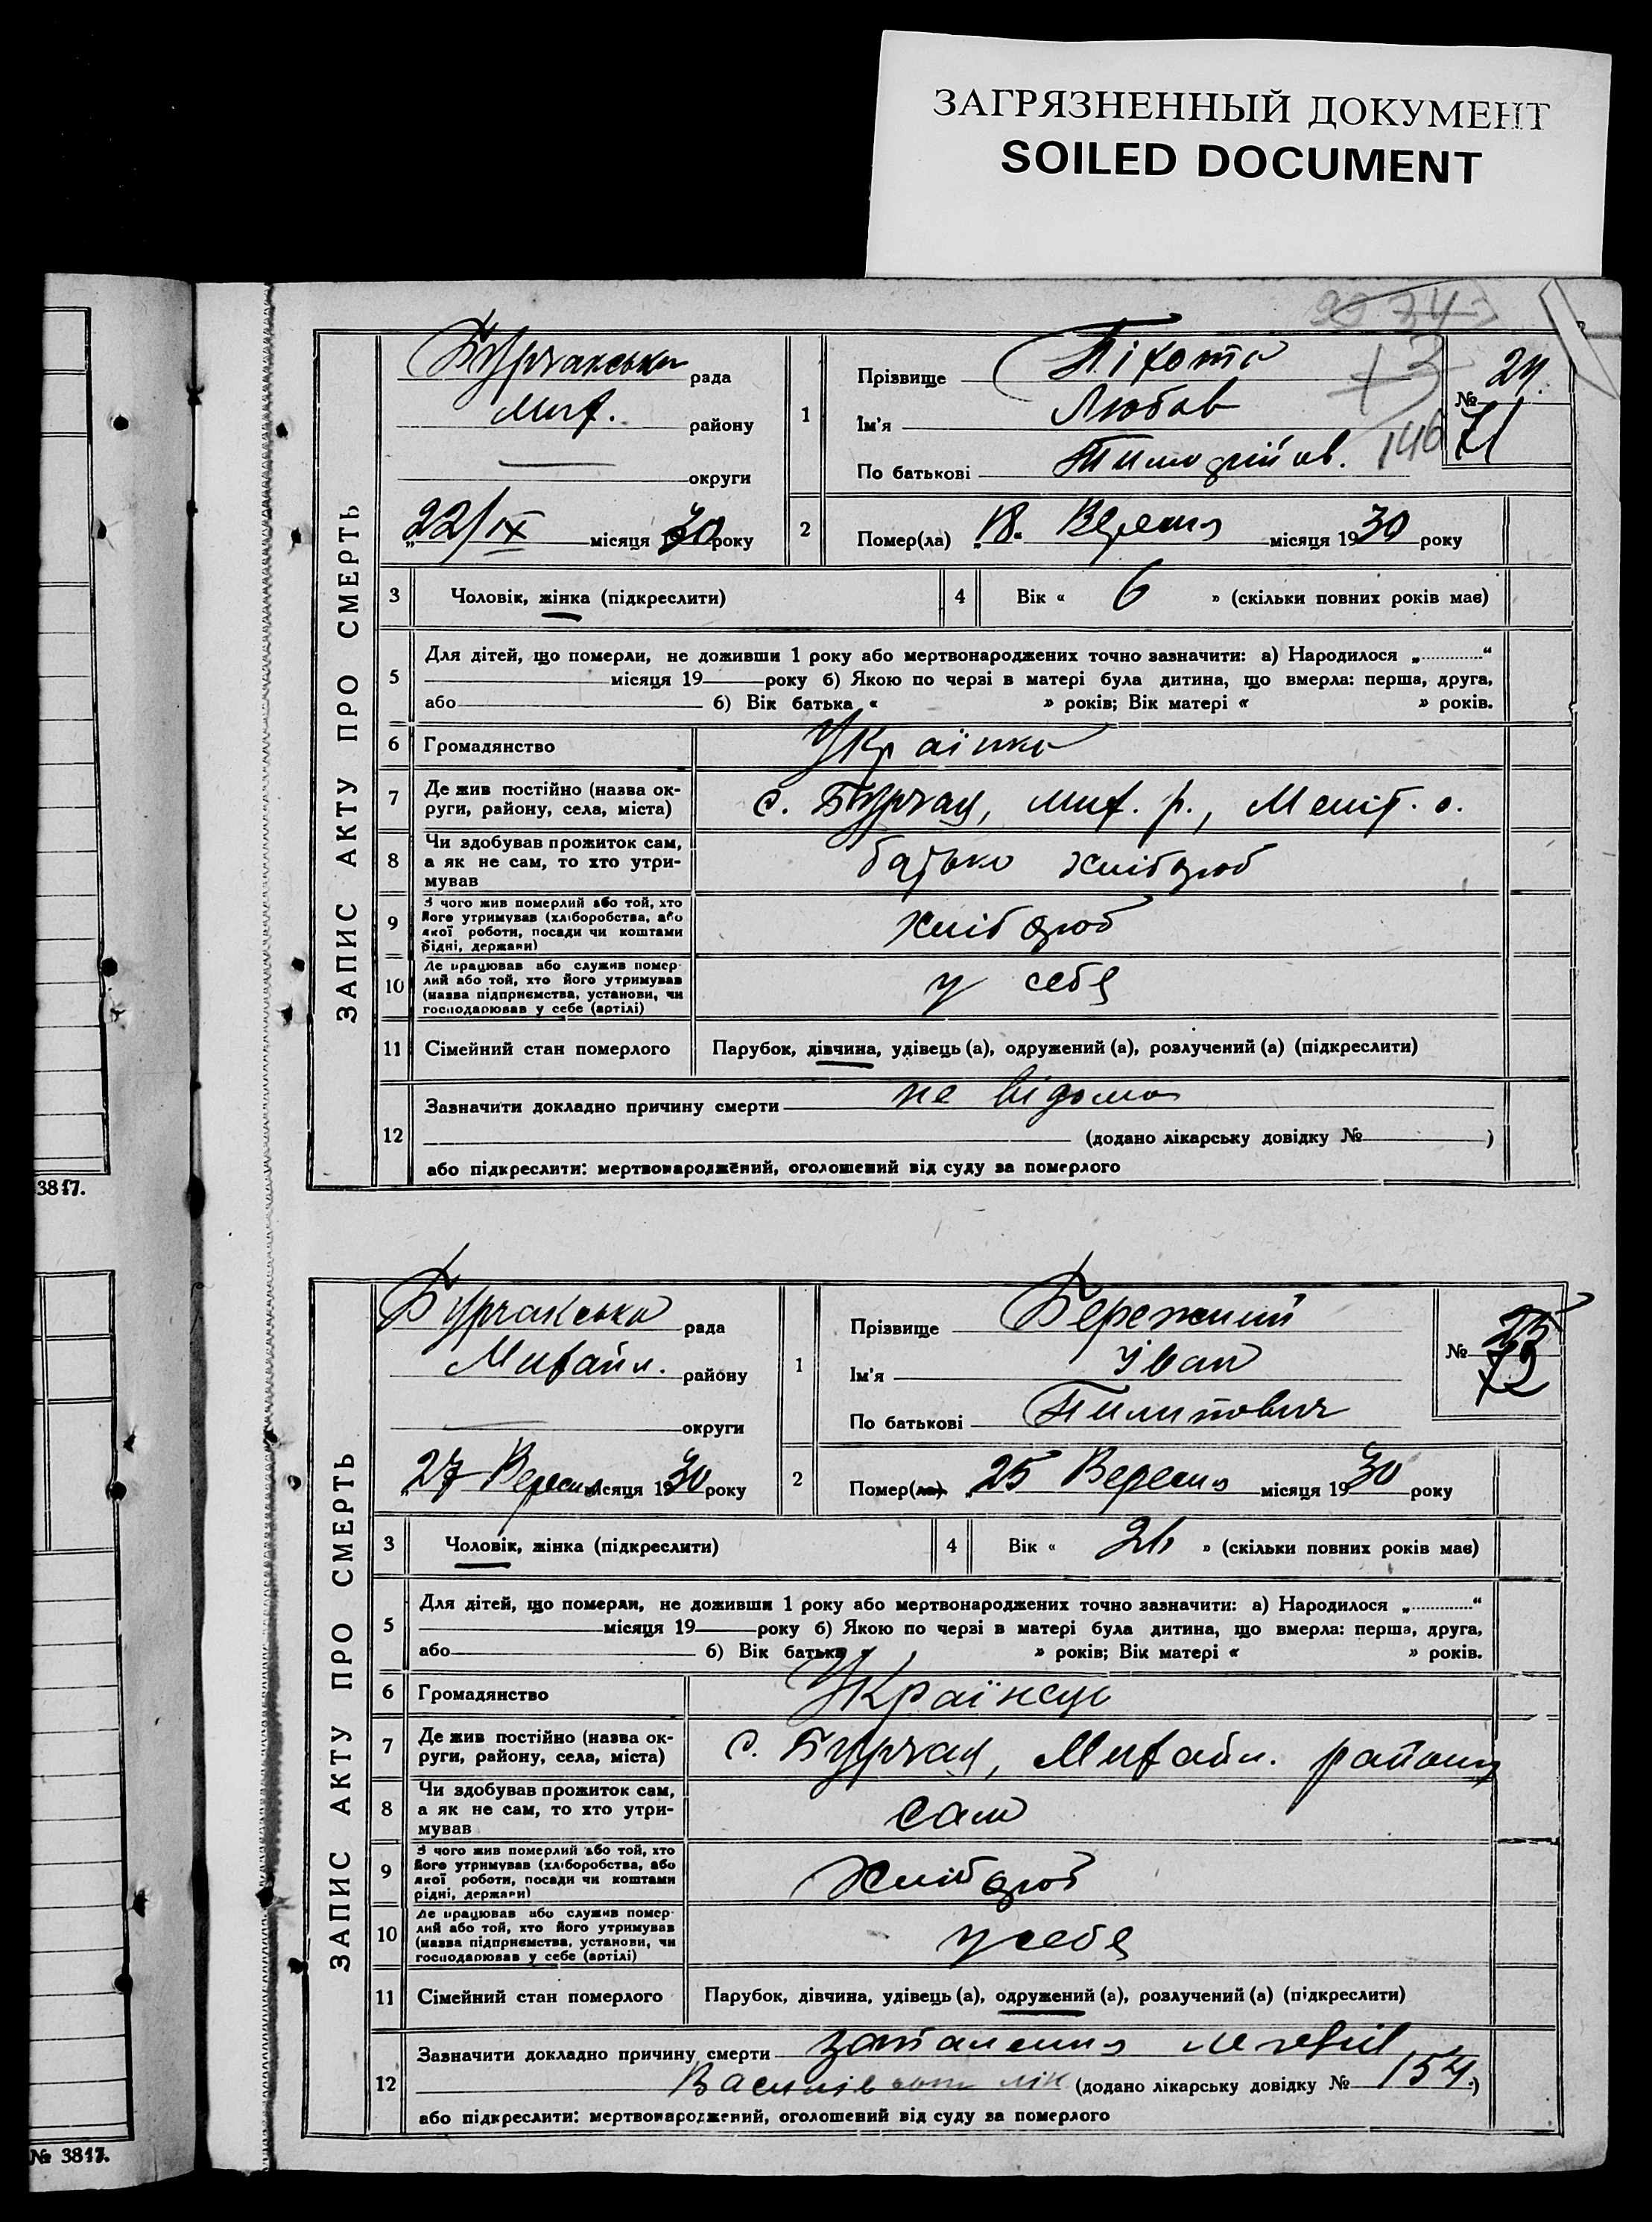 ЗАГРЯЗНЕННЫЙ ДОКУМЕНТ
SOILED DOCUMENT
ЗАПИС АКТУ ПРО СМЕРТЬ
Бурчакська рада
Мих. району
округи
22/IX місяця 1930 року
1
Прізвище Піхота
Ім'я Любов
По батькові Тимофійов.
146
№ 24
71
2
Помер(ла) „18“ Вересня місяця 1930 року
3
Чоловік, жінка (підкреслити)
4
Вік « 6 » (скільки повних років має)
5
Для дітей, що померли, не доживши 1 року або мертвонароджених точно зазначити: а) Народилося „............“
місяця 19 року б) Якою по черзі в матері була дитина, що вмерла: перша, друга,
або б) Вік батька « » років; Вік матері « » років.
6
Громадянство
Українка
7
Де жив постійно (назва ок-
руги, району, села, міста)
с. Бурчак, Мих. р., Меліт. о.
8
Чи здобував прожиток сам,
а як не сам, то хто утри-
мував
батько хлібороб
9
З чого жив померлий або той, хто
його утримував (хліборобства, або
якої роботи, посади чи коштами
рідні, держави)
хлібороб
10
Де працював або служив помер-
лий або той, хто його утримував
(назва підприємства, установи, чи
господарював у себе (артілі)
у себе
11
Сімейний стан померлого
Парубок, дівчина, удівець (а), одружений (а), розлучений (а) (підкреслити)
12
Зазначити докладно причину смерти не відома
(додано лікарську довідку № )
або підкреслити: мертвонароджений, оголошений від суду за померлого
3817.
ЗАПИС АКТУ ПРО СМЕРТЬ
Бурчакська рада
Михайл. району
округи
27 Вересня місяця 1930 року
1
Прізвище Бережний
Ім'я Іван
По батькові Пилипович
№ 25
72
2
Помер(ла) „25 Вересня місяця 1930 року
3
Чоловік, жінка (підкреслити)
4
Вік « 26 » (скільки повних років має)
5
Для дітей, що померли, не доживши 1 року або мертвонароджених точно зазначити: а) Народилося „............“
місяця 19 року б) Якою по черзі в матері була дитина, що вмерла: перша, друга,
або б) Вік батька « » років; Вік матері « » років.
6
Громадянство
Українець
7
Де жив постійно (назва ок-
руги, району, села, міста)
с. Бурчак, Михайл. району
8
Чи здобував прожиток сам,
а як не сам, то хто утри-
мував
сам
9
З чого жив померлий або той, хто
його утримував (хліборобства, або
якої роботи, посади чи коштами
рідні, держави)
Хлібороб
10
Де працював або служив помер-
лий або той, хто його утримував
(назва підприємства, установи, чи
господарював у себе (артілі)
у себе
11
Сімейний стан померлого
Парубок, дівчина, удівець (а), одружений (а), розлучений (а) (підкреслити)
12
Зазначити докладно причину смерти запалення легенів
лік (додано лікарську довідку № 154.)
або підкреслити: мертвонароджений, оголошений від суду за померлого
№ 3817.